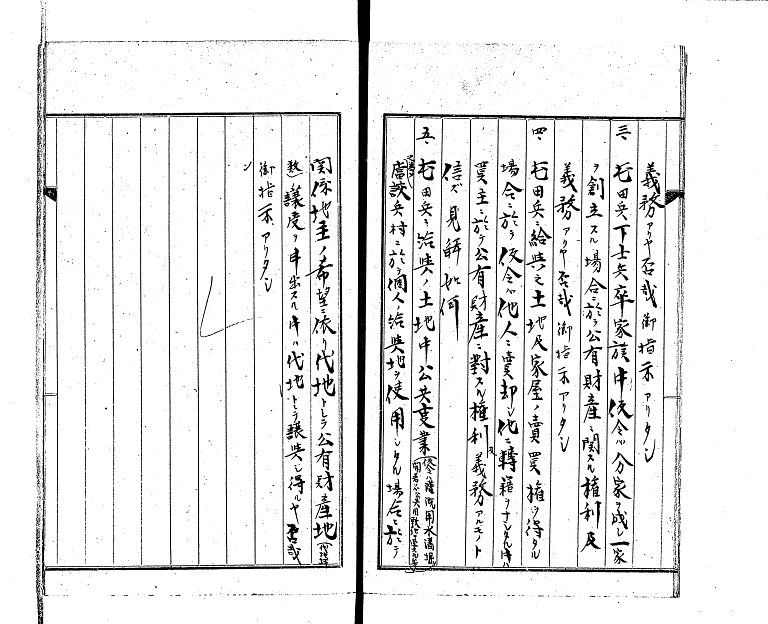 義務アリヤ否哉御指示アリタシ
三、屯田兵下士兵卒家族中仮令ハ分家ヲ成シ一家
ヲ創立スル場合ニ於テ公有財産ニ関スル権利及
義務アリヤ否哉御指示アリタシ
四、屯田兵ニ給与之土地及家屋ノ売買権ヲ得タル
場合ニ於テ仮令ハ他人ニ売却シ他ニ転籍ヲナシタル時ハ
買主ニ於テ公有財産ニ対スル権利及義務アルモノト
信ズ見解如何
五、屯田兵ヘ給与ノ土地中公共事業
当該兵村ニ於テ個人ノ給与地ヲ使用シタル場合ニ於テ
関係地主ノ希望ニ依リ代地トシテ公有財産地
譲受ヲ申出スル時ハ代地トシテ譲与シ得ルヤ否哉
御指示アリタシ